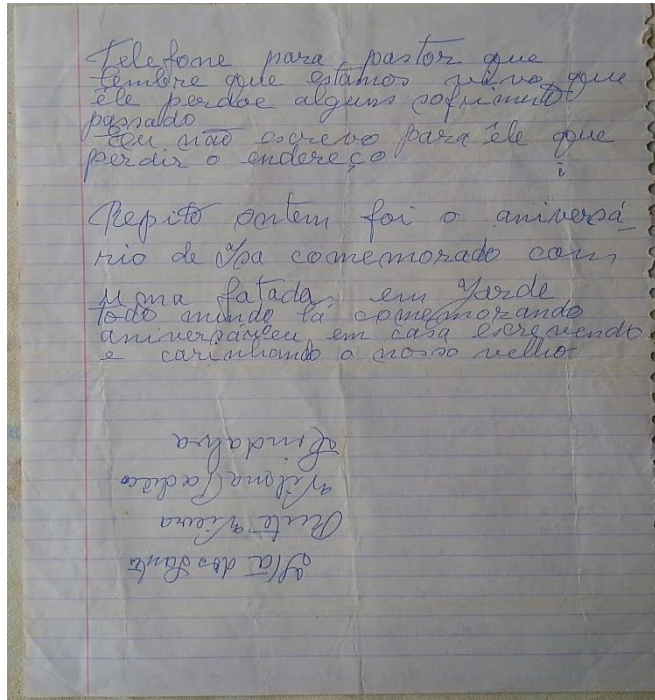 Telefone para pastor que
lembre que estamos vivo, que
êle perdoe alguns sofrimento
passado
Eu não escrevo para êle que
perdir o endereço.
Repito ontem foi o aniversá-
rio de Isa comemorado com
uma fatada, em Jarde
todo mundo lá comemorando
aniversáreu em casa escrevendo
e carinhando o nosso velho
dos Santo
Rute Vieira
Vilma
Lindalva